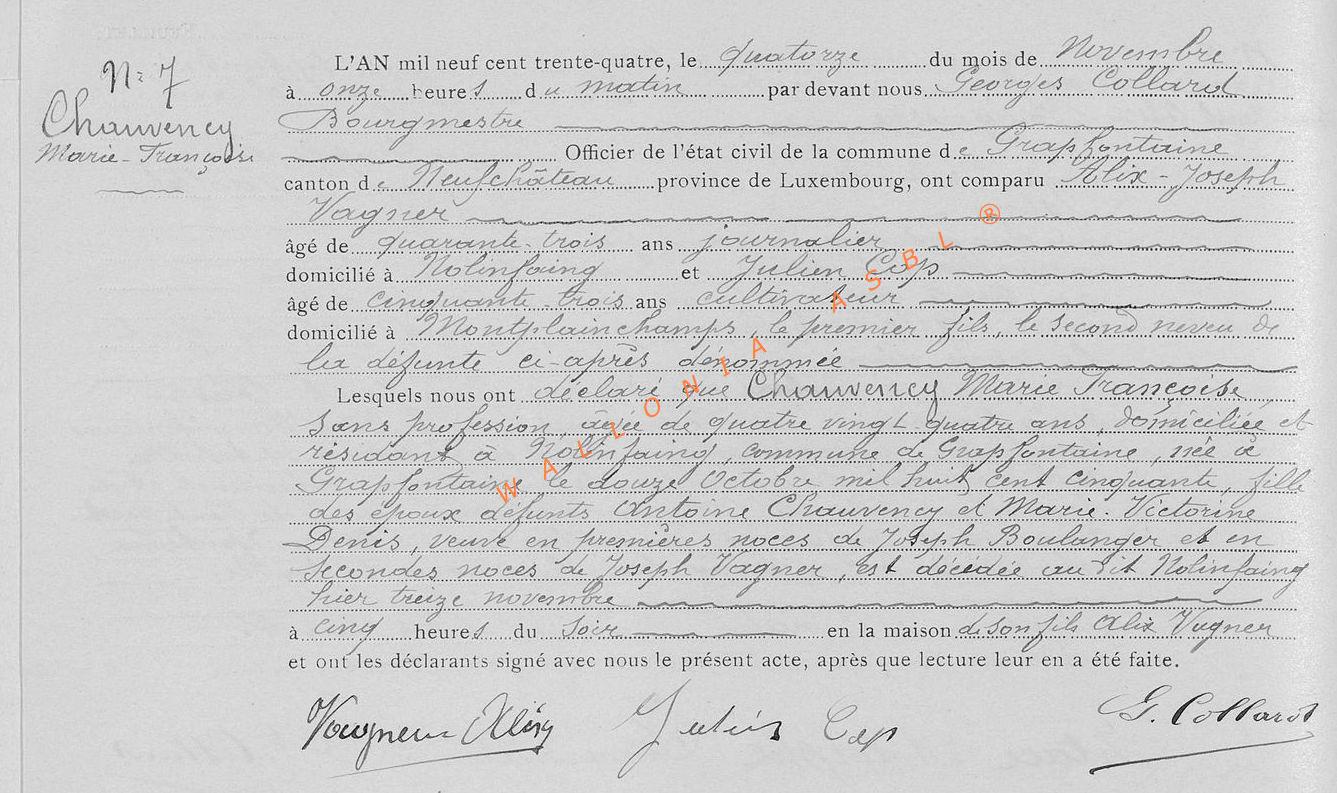 N° 7
Chauvency
Marie-Françoise
L'AN mil neuf cent trente-quatre, le quatorze du mois de Novembre
à onze heures du matin par devant nous Georges Collard
Bourgmestre
Officier de l'état civil de la commune de Grapfontaine
canton de Neufchâteau province de Luxembourg, ont comparu Alix-Joseph
Vagner
âgé de quarante-trois ans journalier
domicilié à Nolinfaing et Julien Cop
âgé de cinquante-trois ans cultivateur
domicilié à Montplainchamps, le premier fils, le second neveu de
la défunte ci-après dénommée
Lesquels nous ont déclaré que Chauvency Marie Françoise,
sans profession, âgée de quatre vingt quatre ans, domiciliée et
résidant à Nolinfaing, commune de Grapfontaine, née à
Grapfontaine le douze Octobre mil huit cent cinquante, fille
des époux défunts Antoine Chauvency et Marie-Victorine
Denis, veuve en premières noces de Joseph Boulanger et en
secondes noces de Joseph Vagner, est décédée au dit Nolinfaing
hier treize novembre
à cinq heures du soir en la maison de son fils Alix Vagner
et ont les déclarants signé avec nous le présent acte, après que lecture leur en a été faite.
Julien Cop G. Collard
WALLONIA ASBL ®